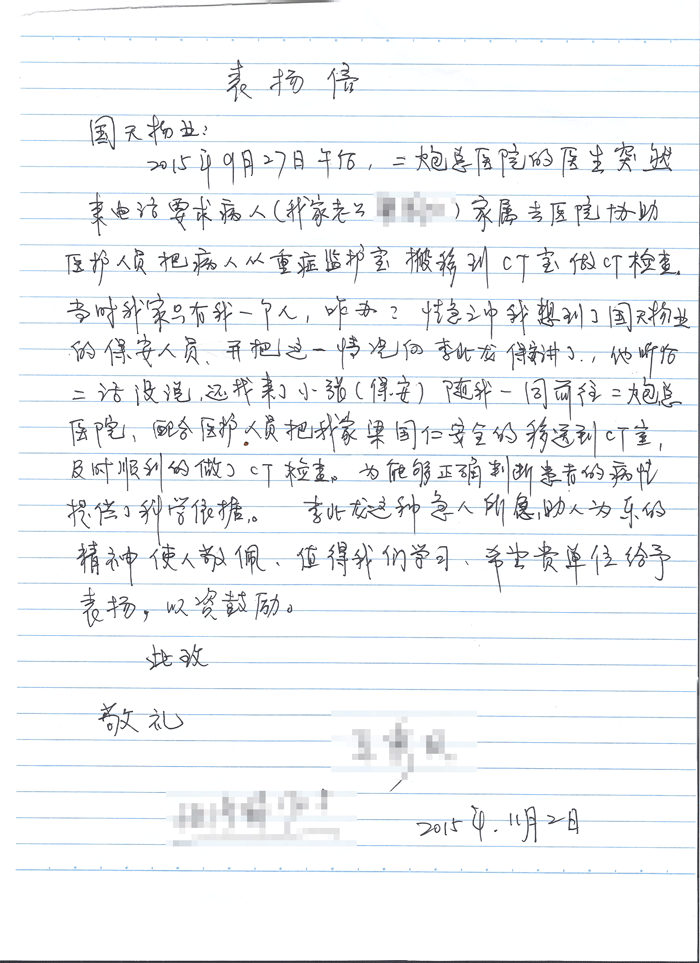 表扬信
国天物业：
2015年9月27日午后，二炮总医院的医生突然
来电话要求病人（我家老公）家属去医院协助
医护人员把病人从重症监护室搬移到CT室做CT检查。
当时我家只有我一个人，咋办？情急之中我想到了国天物业
的保安人员、并把这一情况向李兆龙保安讲了，他听后
二话没说，还找来了小张（保安）随我一同前往二炮总
医院，配合医护人员把我家梁国仁安全的移送到CT室，
及时顺利的做了CT检查。为能够正确判断患者的病情
提供了科学依据。李兆龙这种急人所急，助人为乐的
精神使人敬佩、值得我们学习、希望贵单位给予
表扬，以资鼓励。
此致
敬礼
2015年.11月2日